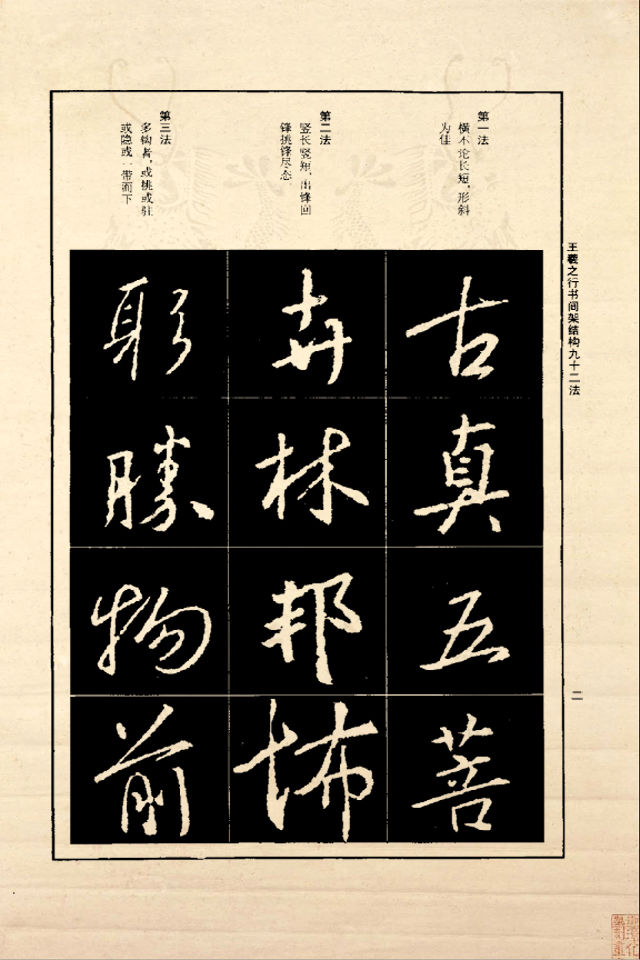 王羲之行书间架结构九十二法
二
第一法
横不论长短,形斜
为佳
第二法
竖长竖短,出锋回
锋挑锋尽态
第三法
多钩者,或挑或驻
或隐或一带而下
古真五菩
卉林邦怖
勝物前